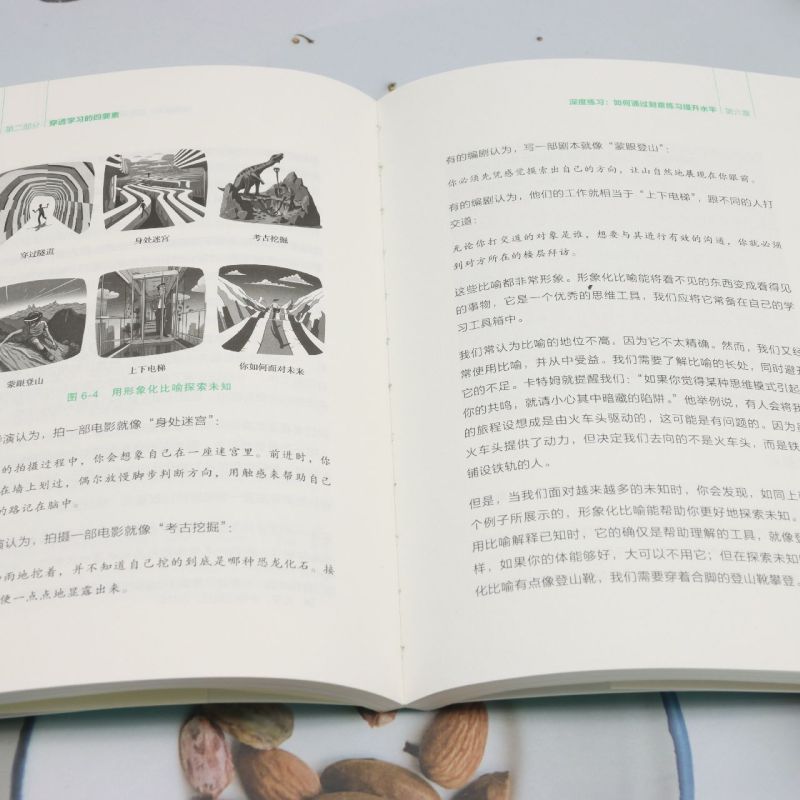 第二部分 穿透学习的四要素
穿过隧道
身处迷宫
考古挖掘
蒙眼登山
上下电梯
你如何面对未来
图 6-4 用形象化比喻探索未知
演认为，拍一部电影就像“身处迷宫”：
的拍摄过程中，你会想象自己在一座迷宫里。前进时，你
在墙上划过，偶尔放慢脚步判断方向，用触感来帮助自己
的路记在脑中。
演认为，拍摄一部电影就像“考古挖掘”：
雨地挖着，并不知道自己挖的到底是哪种恐龙化石。接
便一点点地显露出来。
深度练习：如何通过刻意练习提升水平 第六章
有的编剧认为，写一部剧本就像“蒙眼登山”：
你必须先凭感觉摸索出自己的方向，让山自然地展现在你眼前。
有的编剧认为，他们的工作就相当于“上下电梯”，跟不同的人打
交道：
无论你打交道的对象是谁，想要与其进行有效的沟通，你就必须
到对方所在的楼层拜访。
这些比喻都非常形象。形象化比喻能将看不见的东西变成看得见
的事物，它是一个优秀的思维工具，我们应将它常备在自己的学
习工具箱中。
我们常认为比喻的地位不高，因为它不太精确。然而，我们又经
常使用比喻，并从中受益。我们需要了解比喻的长处，同时避开
它的不足。卡特姆就提醒我们：“如果你觉得某种思维模式引起
你的共鸣，就请小心其中暗藏的陷阱。”他举例说，有人会将我
的旅程设想成是由火车头驱动的，这可能是有问题的。因为
火车头提供了动力，但决定我们去向的不是火车头，而是铁
铺设铁轨的人。
但是，当我们面对越来越多的未知时，你会发现，如同上
个例子所展示的，形象化比喻能帮助你更好地探索未知。
用比喻解释已知时，它的确仅是帮助理解的工具，就像登
样，如果你的体能够好，大可以不用它；但在探索未知
化比喻有点像登山靴，我们需要穿着合脚的登山靴攀登。